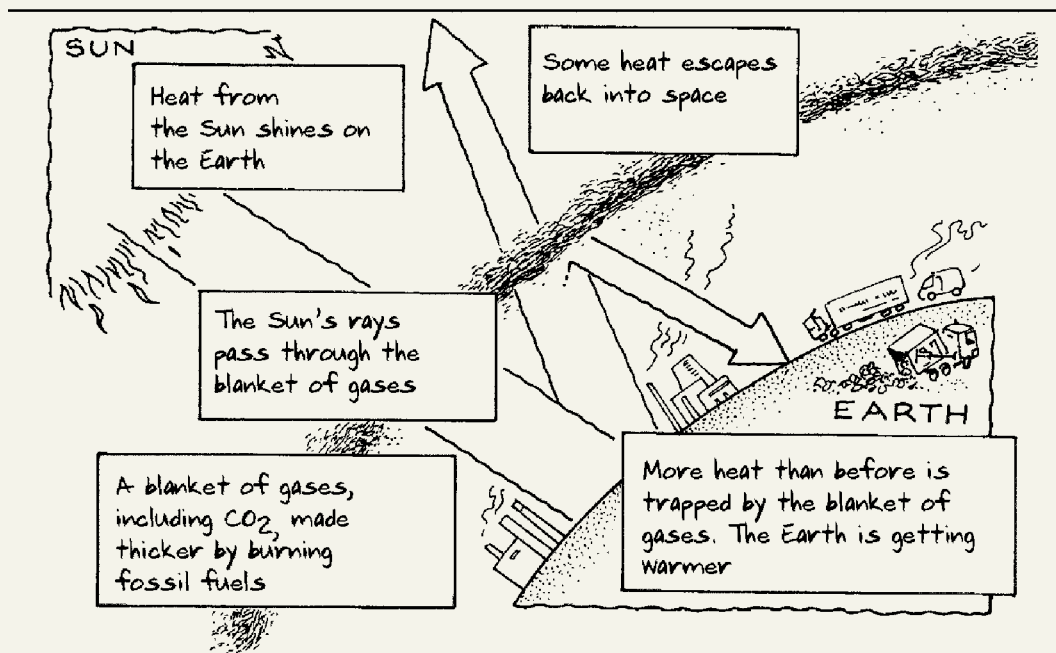 SUN
Heat from
the Sun shines on
the Earth
Some heat escapes
back into space
The Sun's rays
pass through the
blanket of gases
A blanket of gases,
including CO2, made
thicker by burning
fossil fuels
EARTH
More heat than before is
trapped by the blanket of
gases. The Earth is getting
warmer